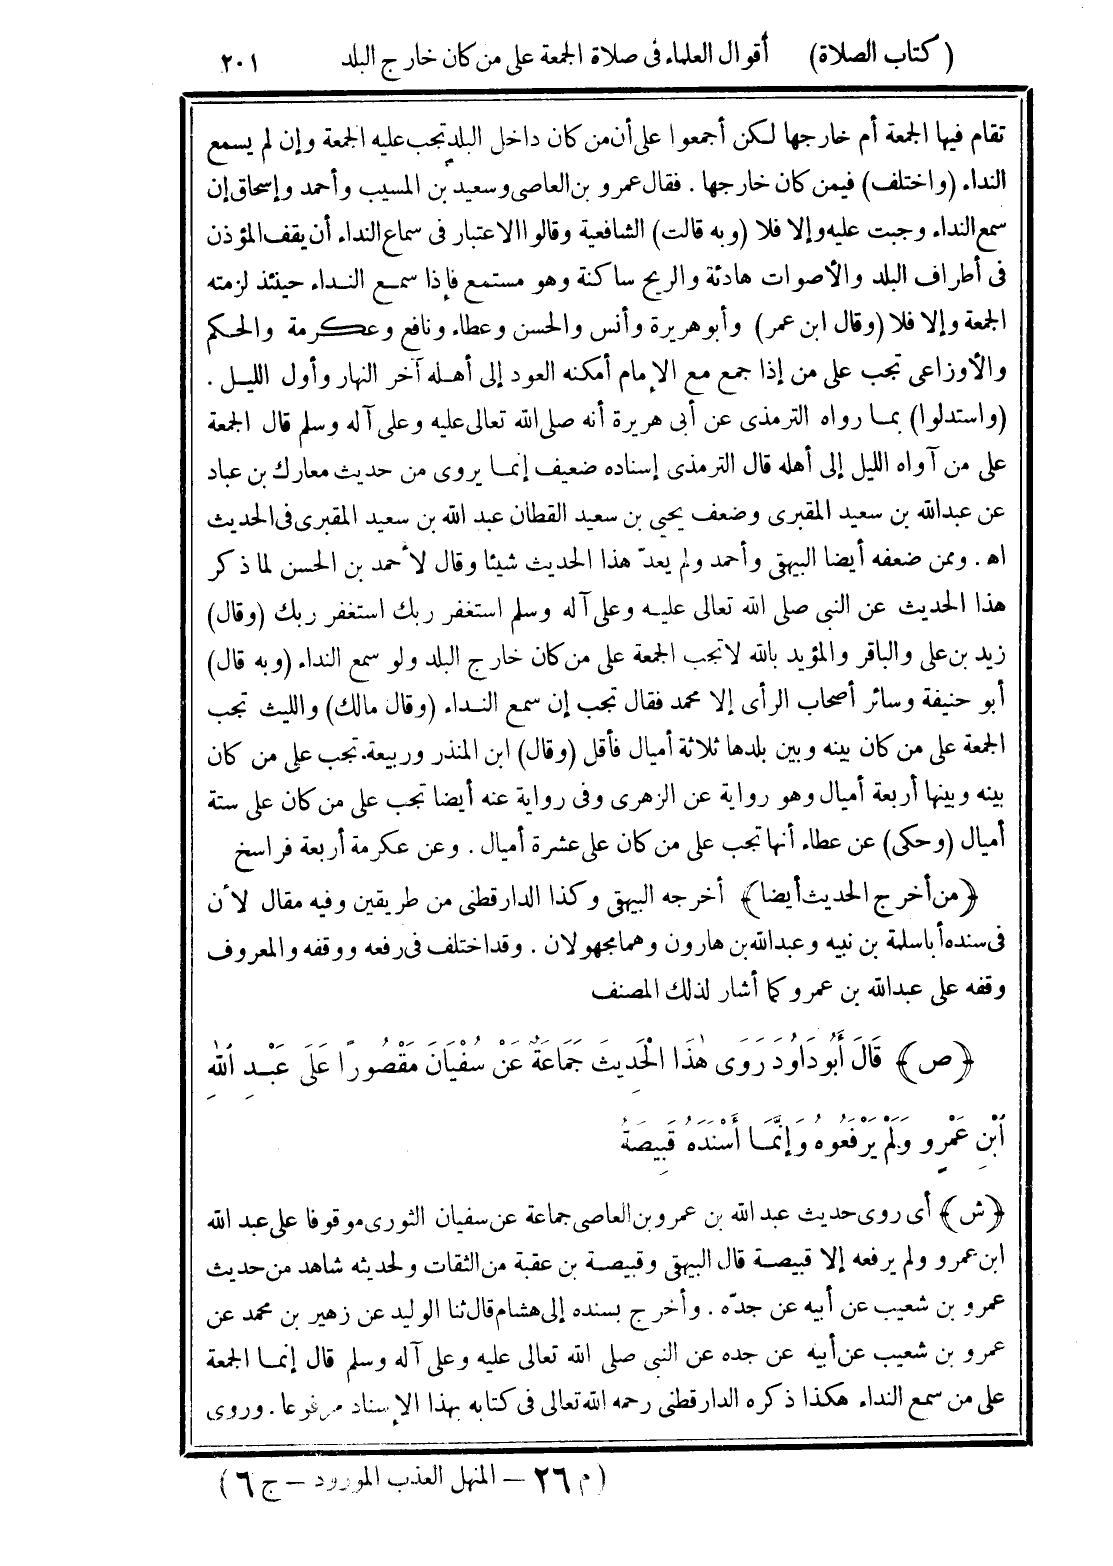 (كتاب الصلاة) أقوال العلماء فى صلاة الجمعة على من كان خارج البلد ٢٠١
تقام فيها الجمعة أم خارجها لكن أجمعوا على أن من كان داخل البلد تجب عليه الجمعة وإن لم يسمع
النداء (واختلف) فيمن كان خارجها . فقال عمرو بن العاصى وسعيد بن المسيب وأحمد وإسحاق إن
سمع النداء وجبت عليه وإلا فلا (وبه قالت) الشافعية وقالوا الاعتبار فى سماع النداء أن يقف المؤذن
فى أطراف البلد والأصوات هادئة والريح ساكنة وهو مستمع فإذا سمع النداء حينئذ لزمته
الجمعة وإلا فلا (وقال ابن عمر) وأبو هريرة وأنس والحسن وعطاء ونافع وعكرمة والحكم
والأوزاعى تجب على من إذا جمع مع الإمام أمكنه العود إلى أهله آخر النهار وأول الليل .
(واستدلوا) بما رواه الترمذى عن أبى هريرة أنه صلى الله تعالى عليه وعلى آله وسلم قال الجمعة
على من آواه الليل إلى أهله قال الترمذى إسناده ضعيف إنما يروى من حديث معارك بن عباد
عن عبدالله بن سعيد المقبرى وضعف يحيى بن سعيد القطان عبد الله بن سعيد المقبرى فى الحديث
اه . وممن ضعفه أيضا البيهقى وأحمد ولم يعدّ هذا الحديث شيئا وقال لأحمد بن الحسن لما ذكر
هذا الحديث عن النبى صلى الله تعالى عليه وعلى آله وسلم استغفر ربك استغفر ربك (وقال)
زيد بن على والباقر والمؤيد بالله لا تجب الجمعة على من كان خارج البلد ولو سمع النداء (وبه قال)
أبو حنيفة وسائر أصحاب الرأى إلا محمد فقال تجب إن سمع النداء (وقال مالك) والليث تجب
الجمعة على من كان بينه وبين بلدها ثلاثة أميال فأقل (وقال) ابن المنذر وربيعة. تجب على من كان
بينه وبينها أربعة أميال وهو رواية عن الزهرى وفى رواية عنه أيضا تجب على من كان على ستة
أميال (وحكى) عن عطاء أنها تجب على من كان على عشرة أميال . وعن عكرمة أربعة فراسخ
﴿من أخرج الحديث أيضا﴾ أخرجه البيهقى وكذا الدارقطنى من طريقين وفيه مقال لأن
فى سنده أبا سلمة بن نبيه وعبدالله بن هارون وهما مجهولان . وقد اختلف فى رفعه ووقفه والمعروف
وقفه على عبدالله بن عمرو كما أشار لذلك المصنف
﴿ص﴾ قَالَ أَبُو دَاوُدَ رَوَى هٰذَا الْحَدِيثَ جَمَاعَةٌ عَنْ سُفْيَانَ مَقْصُورًا عَلَى عَبْدِ اللهِ
ابْنِ عَمْرٍو وَلَمْ يَرْفَعُوهُ وَإِنَّمَا أَسْنَدَهُ قَبِيصَةُ
﴿ش﴾ أى روى حديث عبد الله بن عمرو بن العاصى جماعة عن سفيان الثورى موقوفا على عبد الله
ابن عمرو ولم يرفعه إلا قبيصة قال البيهقى وقبيصة بن عقبة من الثقات ولحديثه شاهد من حديث
عمرو بن شعيب عن أبيه عن جدّه . وأخرج بسنده إلى هشام قال ثنا الوليد عن زهير بن محمد عن
عمرو بن شعيب عن أبيه عن جده عن النبى صلى الله تعالى عليه وعلى آله وسلم قال إنما الجمعة
على من سمع النداء هكذا ذكره الدارقطنى رحمه الله تعالى فى كتابه بهذا الإسناد مرفوعا . وروى
(م ٢٦ – المنهل العذب المورود – ج ٦)